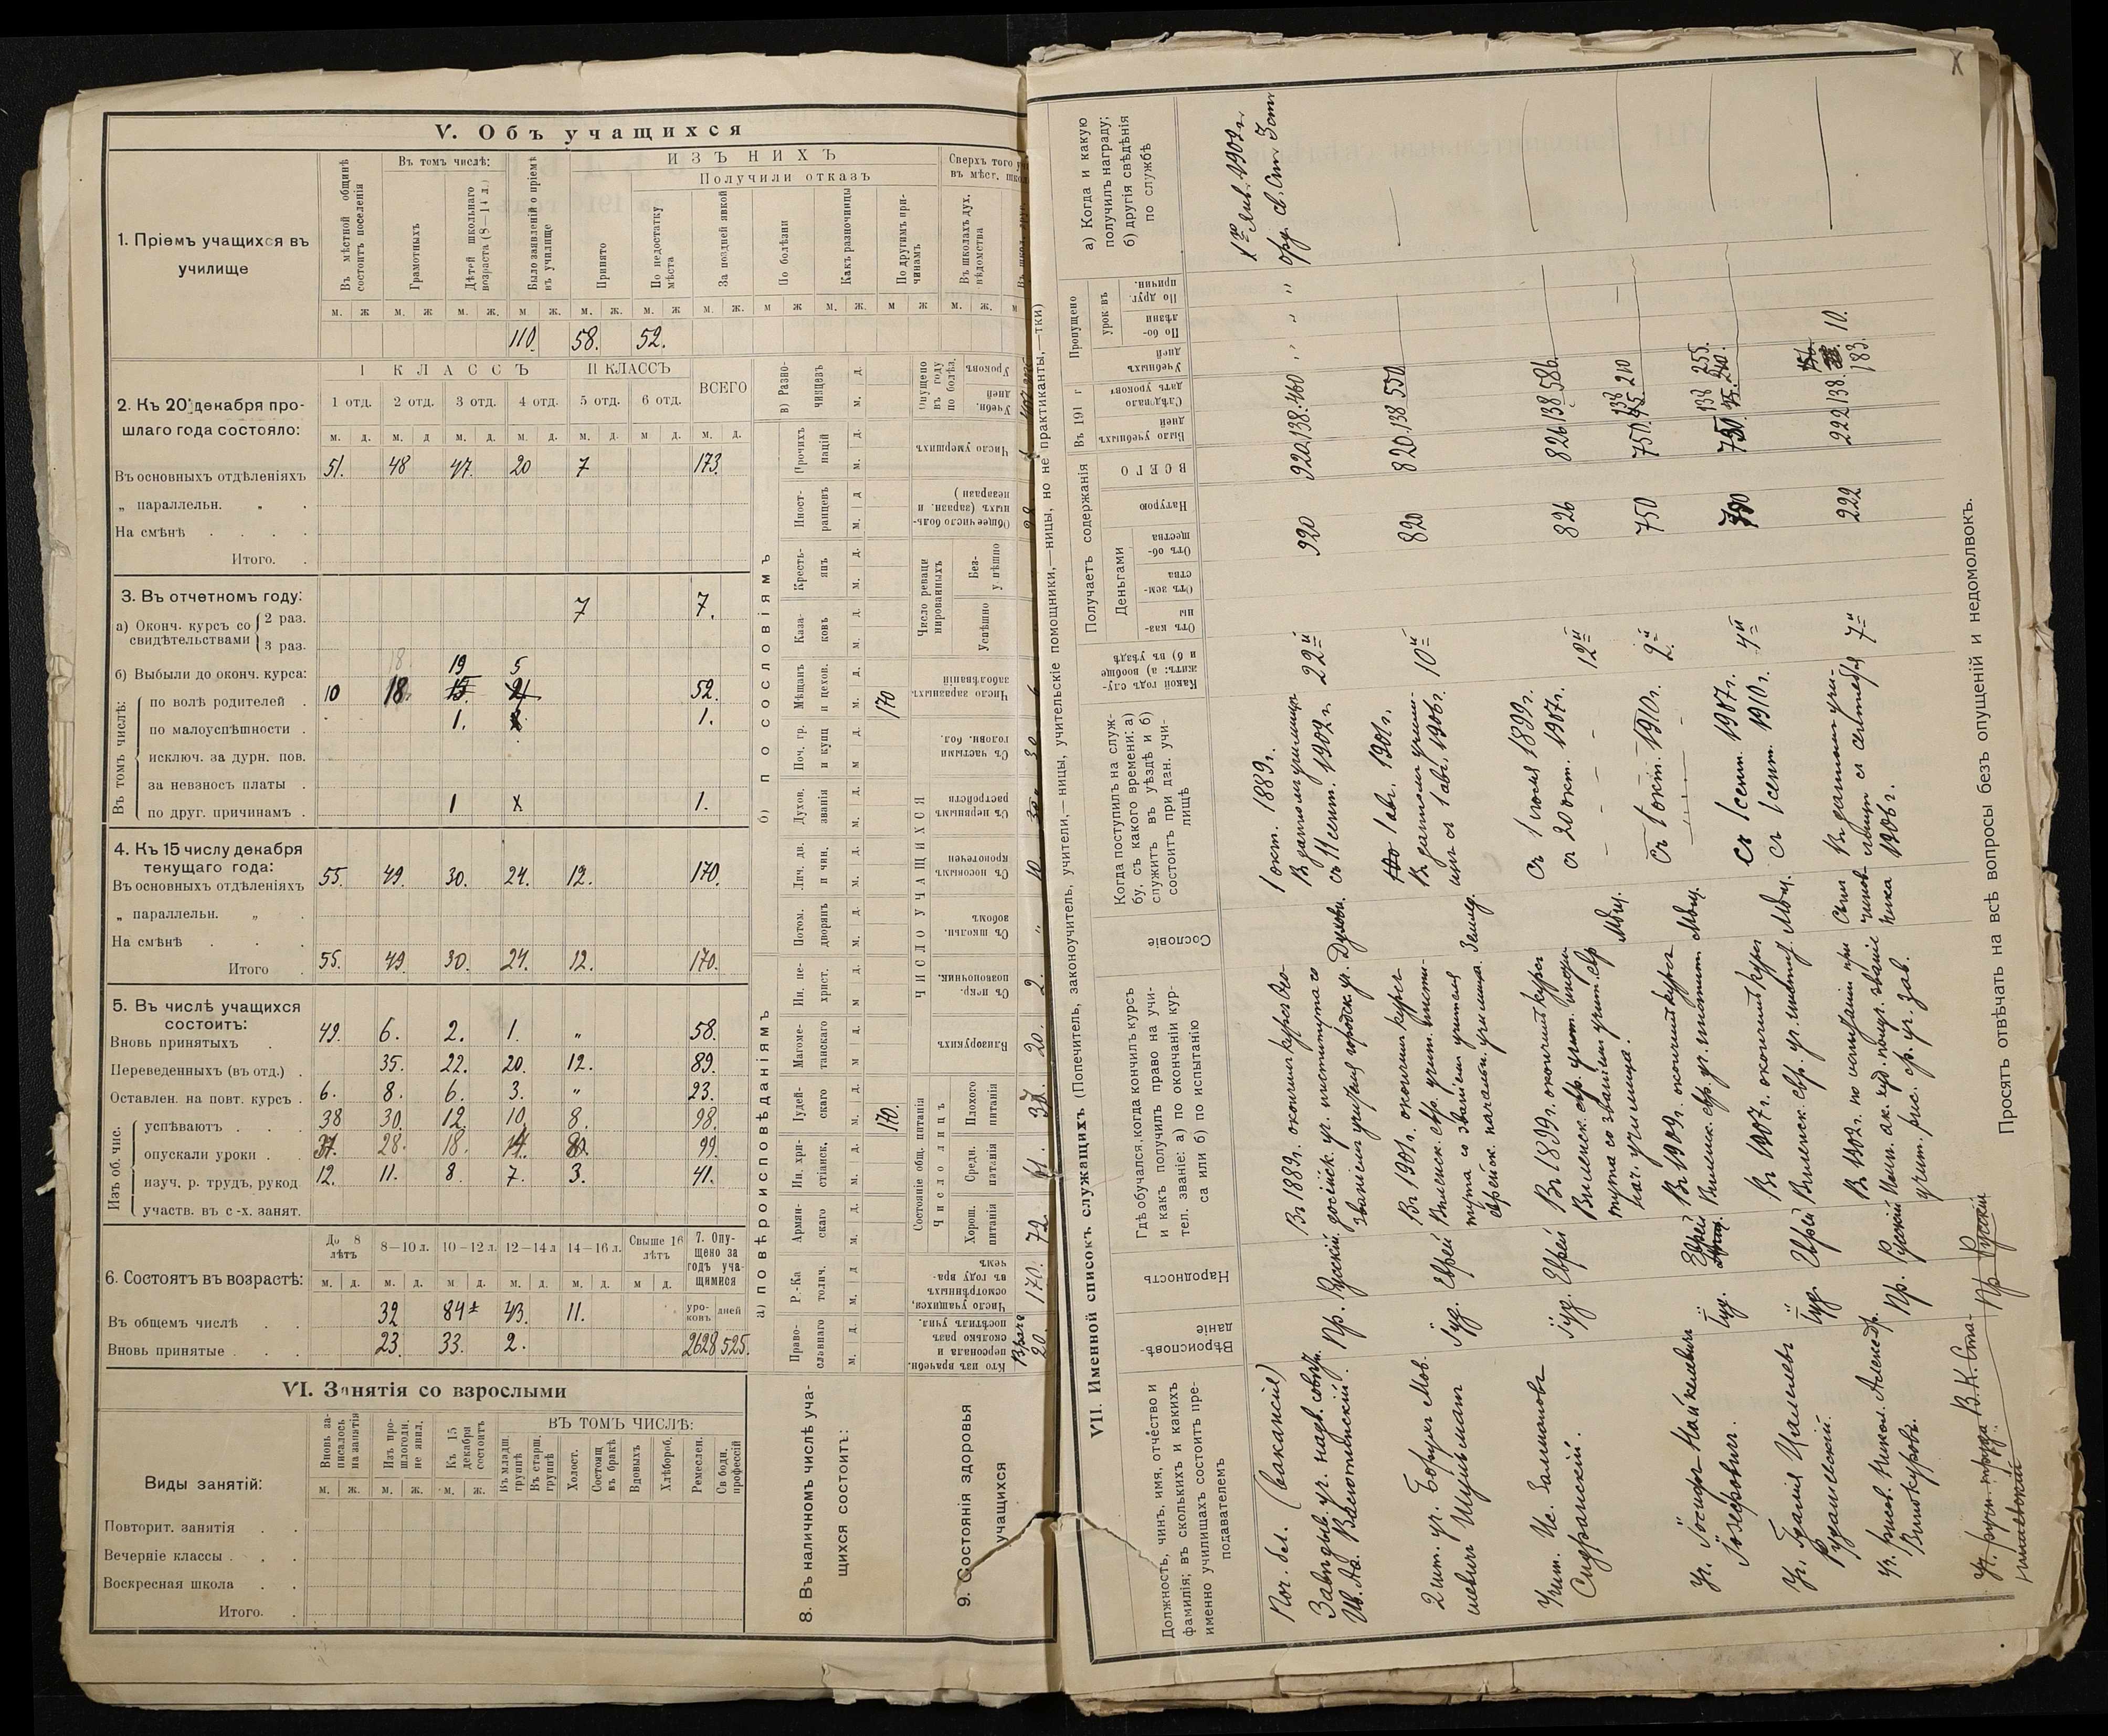 V. Объ учащихся
1. Пріемъ учащихся въ училище
Въ мѣстной общинѣ состоитъ поселенія
Въ томъ числѣ:
Грамотныхъ
Дѣтей школьнаго возраста (8—14 л.)
Было заявленій о пріемѣ въ училище
ИЗЪ НИХЪ
Принято
Получили отказъ
По недостатку мѣста
За поздней явкой
По болѣзни
Какъ разночинцы
По другимъ причинамъ
Сверхъ того
въ мѣст.
Въ школахъ дух. вѣдомства
м. ж м. ж м. ж. м ж. м. ж. м. ж м. ж. м ж м. ж. м ж м. ж. м
110. 58. 52.
2. Къ 20 декабря прошлаго года состояло:
I КЛАССЪ II КЛАССЪ ВСЕГО
1 отд. 2 отд. 3 отд. 4 отд. 5 отд. 6 отд.
м. д. м. д м. д. м. д. м. д. м д. м. д.
Въ основныхъ отдѣленіяхъ 51. 48 47. 20 7 173.
„ параллельн. „
На смѣнѣ
Итого.
3. Въ отчетномъ году:
а) Оконч. курсъ со свидѣтельствами
2 раз. 7 7.
3 раз.
б) Выбыли до оконч. курса: 18 19 5
Въ томъ числѣ:
по волѣ родителей 10 18. 15. 21 52.
по малоуспѣшности 1. 1.
исключ. за дурн. пов.
за невзносъ платы
по друг. причинамъ 1 х 1.
4. Къ 15 числу декабря текущаго года:
Въ основныхъ отдѣленіяхъ 55. 49. 30. 24. 12. 170.
„ параллельн. „
На смѣнѣ
Итого 55. 49. 30. 24. 12. 170.
5. Въ числѣ учащихся состоитъ:
Вновь принятыхъ 49. 6. 2. 1. „ 58.
Переведенныхъ (въ отд.) 35. 22. 20. 12. 89.
Оставлен. на повт. курсъ 6. 8. 6. 3. „ 23.
Изъ об. чис.
успѣваютъ 38 30. 12. 10. 8. 98.
опускали уроки 37. 28. 18. 14. 99.
изуч. р. трудъ, рукод 12. 11. 8. 7. 3. 41.
участв. въ с-х. занят.
6. Состоятъ въ возрастѣ:
До 8 лѣтъ 8—10 л. 10—12 л. 12—14 л 14—16 л. Свыше 16 лѣтъ
7. Опущено за годъ учащимися
м. д. м. д. м д. м. д. м. д. м д.
уроковъ дней
Въ общемъ числѣ 32 84 43. 11.
Вновь принятые 23. 33. 2. 2628 525.
VI. Занятія со взрослыми
Виды занятій:
Вновь записалось на занятія
Изъ прошлогодн. не явил.
Къ 15 декабря состоитъ
ВЪ ТОМЪ ЧИСЛѢ:
Въ младш. группѣ
Въ старш. группѣ
Холост.
Состоящ въ бракѣ
Вдовыхъ
Хлѣбороб.
Ремеслен.
Своводн. профессій
м. ж. м. ж. м. ж.
Повторит. занятія
Вечерніе классы
Воскресная школа
Итого.
8. Въ наличномъ числѣ учащихся состоитъ:
а) по вѣроисповѣданіямъ
Православнаго
Р.-Католич.
Армянскаго
Ин. христіанск.
Іудейскаго
170.
Магометанскаго
Ин. нехрист.
б) по сословіямъ
Потом. дворянъ
Лич. дв. и чин.
Духов. званія
Поч. гр. и купц
Мѣщанъ и цехов.
170
Казаковъ
Крестьянъ
Иностранцевъ
Прочихъ націй
в) Разночинцевъ
9. Состоянія здоровья учащихся
Кто изъ врачебн. персонала и сколько разъ посѣтилъ учил.
Врачъ 20.
Число учащихся, осмотрѣнныхъ въ году врачемъ
170.
Состояніе общ. питанія
Число лицъ
Хорош. питанія
72
Средн. питанія
61.
Плохого питанія
37.
ЧИСЛО УЧАЩИХСЯ
Близорукихъ
20.
Съ искр. позвоночник.
2.
Съ школьн. зобомъ
„
Съ носовымъ кровотечен
10
Съ нервнымъ разстройств
Съ частыми головн. бол.
30
Число заразныхъ заболѣваній
6
Число ревацинированныхъ
Успѣшно
Безуспѣшно
Общее число больныхъ (заразн. и незаразн)
Число умершихъ
Опущено въ году по болѣз.
Учебн. дней
Уроковъ
VII. Именной списокъ служащихъ (Попечитель, законоучитель, учители,—ницы, учительскіе помощники,—ницы, но не практиканты,—тки)
Должность, чинъ, имя, отчество и фамилія; въ сколькихъ и какихъ именно училищахъ состоитъ преподавателемъ
Вѣроисповѣданіе
Народность
Гдѣ обучался, когда кончилъ курсъ и какъ получилъ право на учител. званіе: а) по окончаніи курса или б) по испытанію
Сословіе
Когда поступилъ на службу, съ какого времени: а) служитъ въ уѣздѣ и б) состоитъ при дан. училищѣ
Какой годъ служитъ: а) вообще и б) въ уѣздѣ
Получаетъ содержанія
Деньгами
Отъ казны
Отъ земства
Отъ общества
Натурою
ВСЕГО
Въ 191 г
Было учебныхъ дней
Слѣдовало дать уроковъ
Пропущено
Учебныхъ дней
урок въ
По болѣзни
По друг. причин.
а) Когда и какую получилъ награду; б) другія свѣдѣнія по службѣ
Поч. бл. (вакансія)
Завѣдыв. уч. надв. совѣтн.
Ив. Ад. Высотинскій. Пр. Русскій.
Въ 1889г. окончилъ курсъ
уч. института со
званіемъ учителя городск. уч. Духовн.
1 окт. 1889г.
Въ данномъ училищѣ
съ 11 сент. 1902 г. 22й 920 920. 138. 460 „ „ „
1 янв. 1909г.
орд. св. Стан. 3 степ
2 шт. уч. Борухъ Мов.
шевичъ Шульманъ Іуд. Еврей
Въ 1901г. окончилъ курсъ
Виленск. евр. учит. института
со званіемъ учителя
еврейск. начальн. училища. Земл.
1 авг. 1901г.
Въ данномъ училищѣ
съ 1 авг. 1906г. 10й 820 820. 138 550 —
Учит. Ис. Залмановъ
Сидранскій. Іуд. Еврей
Въ 1899г. окончилъ курсъ
Виленск. евр. учит. института
со званіемъ учит. евр
нач. училища. Мѣщ.
съ 1 іюля 1899г.
съ 20 окт. 1907г. 12й 826 826. 138. 586.
Уч. Іосифъ
Іозефовичъ. Іуд. Еврей
Въ 1909г. окончилъ курсъ
Виленск. евр. уч. институт. Мѣщ.
Съ 1 окт. 1910г. 2й 750 750. 138 210
Уч. Израилевъ
Іуд. Еврей
Въ 1907г. окончилъ курсъ
Виленск. евр. уч. институт. Мѣщ.
съ 1 сент. 1907г.
съ 1 сент. 1910г. 4й 138 255.
Уч. рисов. Никол. Александр.
Винокуровъ. Пр. Русскій
Въ 1902г. по испытаніи при
Имп. ак. худ. получ. званіе
учит. рис. ср. уч. зав.
Сынъ чиновника
Въ данномъ училищѣ
служитъ съ сентября
1906г. 7й 222 222 138. 183. 10.
Уч. ручн. труда В. К. Пр Русскій
Просятъ отвѣчать на всѣ вопросы безъ опущеній и недомолвокъ.